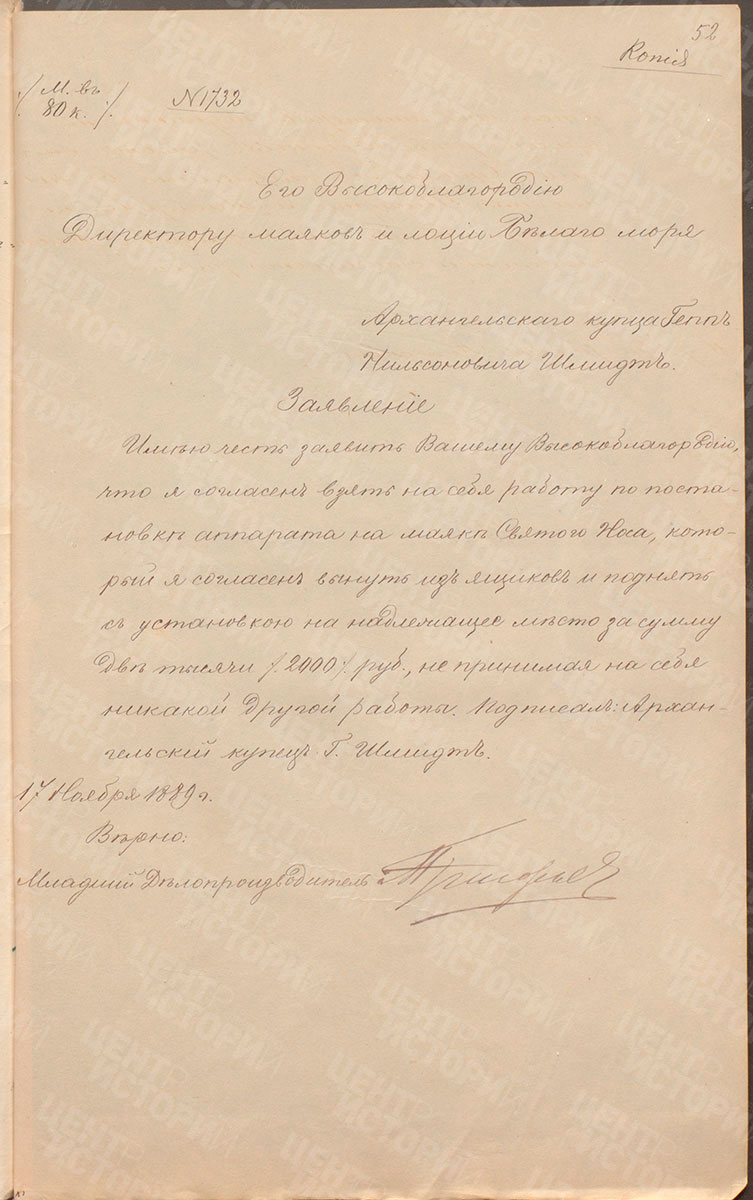 52
Копія
/ М. въ
80 к. /.
N 1732
Его Высокоблагородію
Директору маяковъ и лоціи Бѣлаго моря
Архангельскаго купца Геппъ
Нильсоновича Шмидтъ.
Заявленіе
Имѣю честь заявить Вашему Высокоблагородію,
что я согласенъ взять на себя работу по поста-
новкѣ аппарата на маякѣ Святого Носа, кото-
рый я согласенъ вынуть изъ ящиковъ и поднять
съ установкою на надлежащее мѣсто за сумму
двѣ тысячи /. 2000 /. руб., не принимая на себя
никакой другой работы. Подписалъ: Архан-
гельскій купецъ Г. Шмидтъ.
17 Ноября 1889 г.
Вѣрно:
Младшій Дѣлопроизводитель
ЦЕНТР ИСТОРИИ